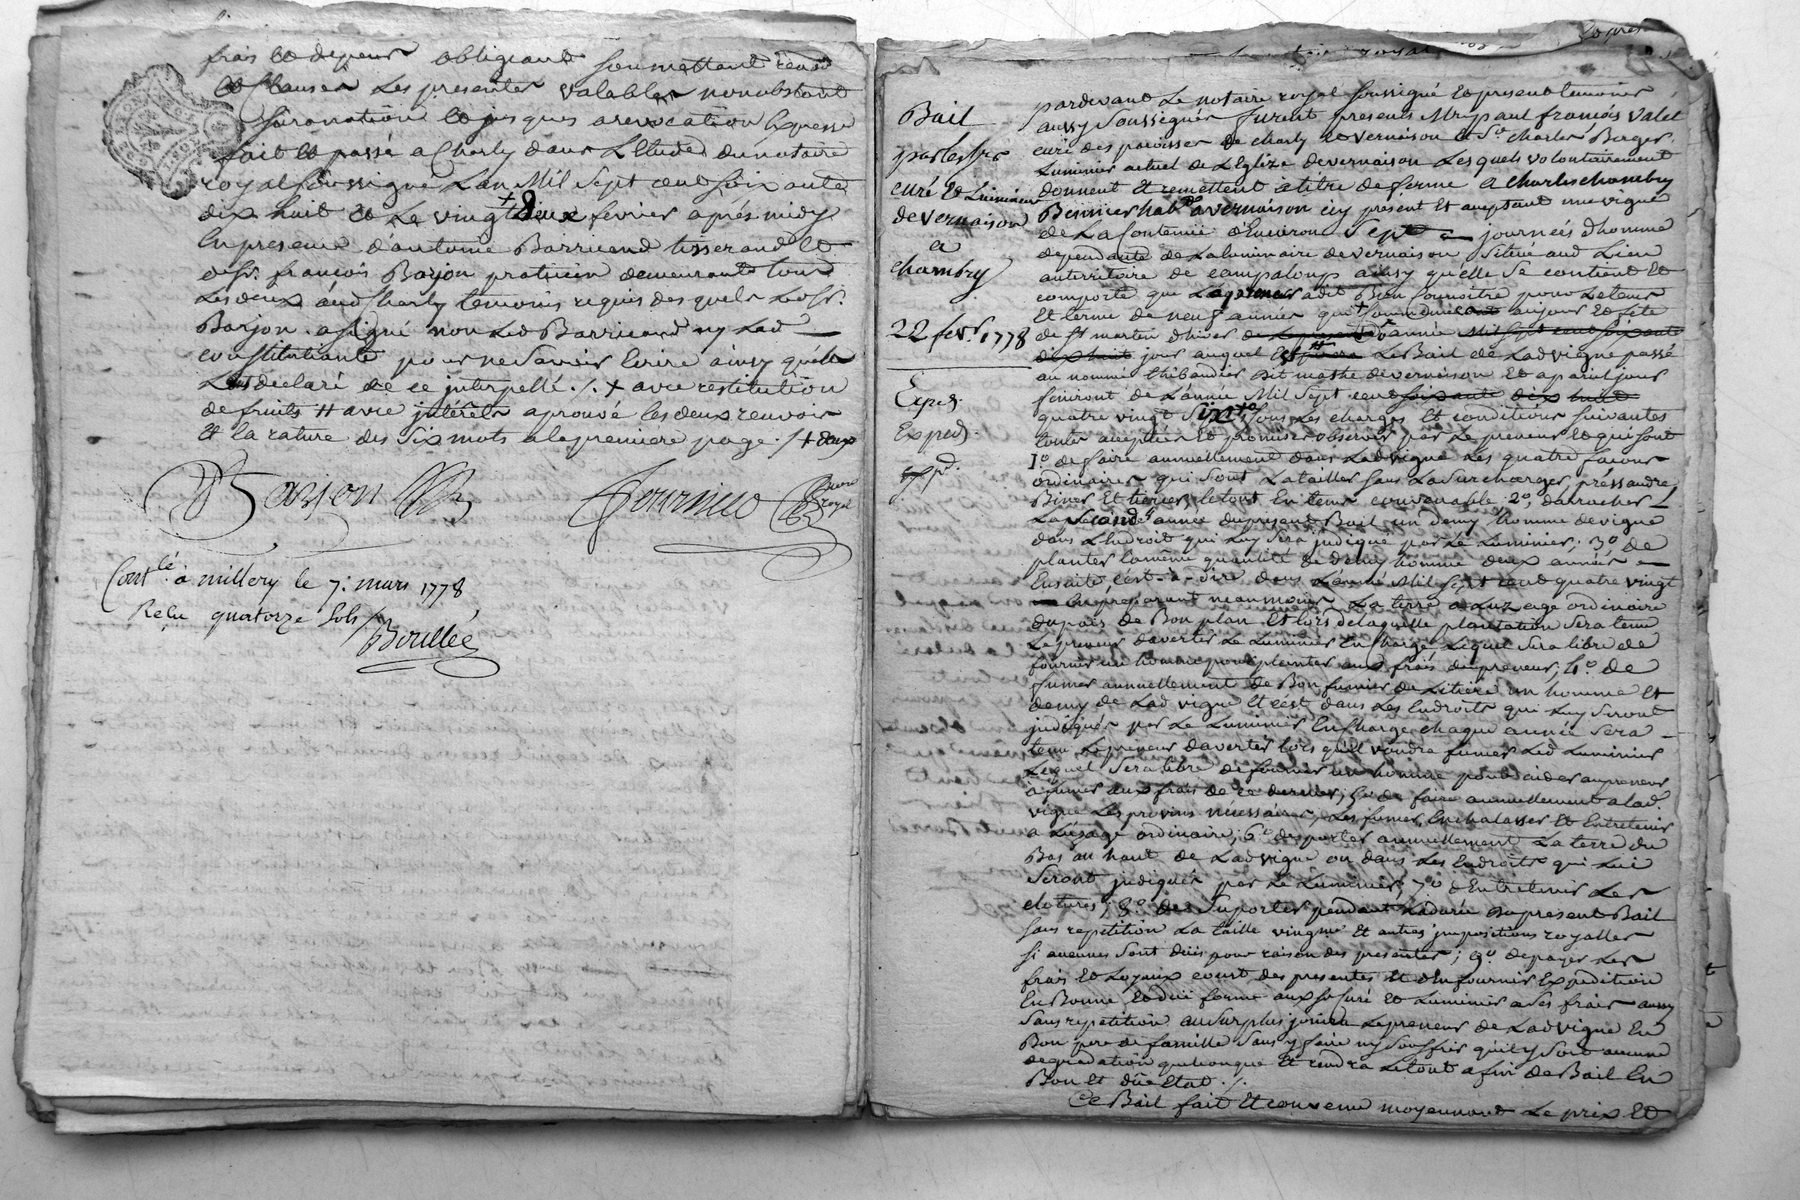 frais et depens obligeant soumettant renon
et Clauses Les presentes valables nonobstant
surannation et jusques a revocation Expresse
fait et passé a Charly dans L'Etude du notaire
royal soussigné L'an Mil Sept cent soixante
dix huit et Le vingt deux fevrier après midy
En presence d'antoine Barricand tisserand et
de sr. françois Barjon praticien demeurants tous
Les deux aud Charly temoins requis des quels Led sr.
Barjon a signé non Led Barricand ny Lad
constituante pour ne savoir Ecrire ainsy qu'els
L'ont declaré de ce interpellé ./. + avec restitution
de fruits # avec intérêts aprouvé les deux renvois
et la rature des six mots a la premiere page ./. + deux
Barjon
fournier
nore
royal
Contlé. à millery le 7: mars 1778
Reçu quatorze sols
Boullée
Bail
par les srs
curé & Luminier
de vernaison
a
chambry
22 fevr. 1778
Exped.
Exped.
Expd.
pardevant Le notaire royal soussigné et present temoins
aussy soussignés furent presents Mre paul françois valet
curé des paroisses de charly et vernaison et Sr. charles Berger
Luminier actuel de L'Eglize de vernaison Lesquels volontairement
donnent et remettent a titre de ferme a charles chambry
hab. a vernaison icy present et aceptant une vigne
de La Contenüe d'Environ Sept journées d'homme
dependante de La luminaire de vernaison Situé aud Lieu
au territoire de campaloup ainsy qu'elle se contient et
comporte que Le preneur a dit Bien Connoitre pour Le tems
et terme de neuf années qui Commencent aujour et fete
de st martin d'hiver de année Mil sept cent soixante
dix huit jour auquel Le Bail de Lad vigne passé
au nommé thibaudier dit de vernaison et a pareil jour
finiront de L'année Mil Sept cent soixante dix huit
quatre vingt Sept sous Les charges et conditions suivantes
toutes aceptées et promises observer par Le preneur et qui sont
1o. de faire annuellement dans Lad vigne Les quatre façons
ordinaires qui sont La tailler sans La surcharger, pressandre
Biner et tiercer, le tout en tems convenable 2o. d'arracher
La seconde année du present Bail un demy homme de vigne
dans L'Endroit qui Luy sera judiqué par Le Luminier; 3o. de
planter La même quantité de demy homme deux années
Ensuite c'est-a-dire dans L'année Mil sept cent quatre vingt
En preparant neanmoins La terre a L'uzage ordinaire
du pais de Bon plan et lors de laquelle plantation sera tenu
Le preneur d'avertir Le Luminier En charge Lequel sera libre de
fournir un homme pour planter aux frais du preneur; 4o. de
fumer annuellement de Bon fumier de Litière un homme et
demy de Lad vigne et c'est dans Les Endroits qui Luy seront
judiqués par Le Luminier En charge chaque année sera
tenu Le preneur d'avertir lors qu'il voudra fumer Led Luminier
Lequel sera libre de fournir un homme pour aider au preneur
a fumer aux frais de ce dernier; 5o. de faire annuellement a lad.
vigne Les provins nécessaires, Les fumer Enchalasser et Entretenir
a L'uzage ordinaire; 6o. de porter annuellement La terre du
Bas au haut de Lad vigne ou dans Les Endroits qui Lui
seront judiqués par Le Luminier; 7o. d'Entretenir Les
clotures; 8o. de Suporter pendant La durée du present Bail
sans repetition La taille vingme. et autres impositions royalles
si aucunes sont dües pour raison des presentes; 9o. de payer Les
frais et Loyaux cout des presentes et d'En fournir Expedition
En Bonne et düe forme aux sr Curé et Luminier a ses frais aussy
sans repetition au surplus jouira Le preneur de Lad vigne En
Bon pere de famille sans y faire ny souffrir qu'il y soit aucune
degradation quelconque et rendra Le tout a fin de Bail En
Bon et düe Etat ./.
Ce Bail fait et convenu moyennant Le prix et